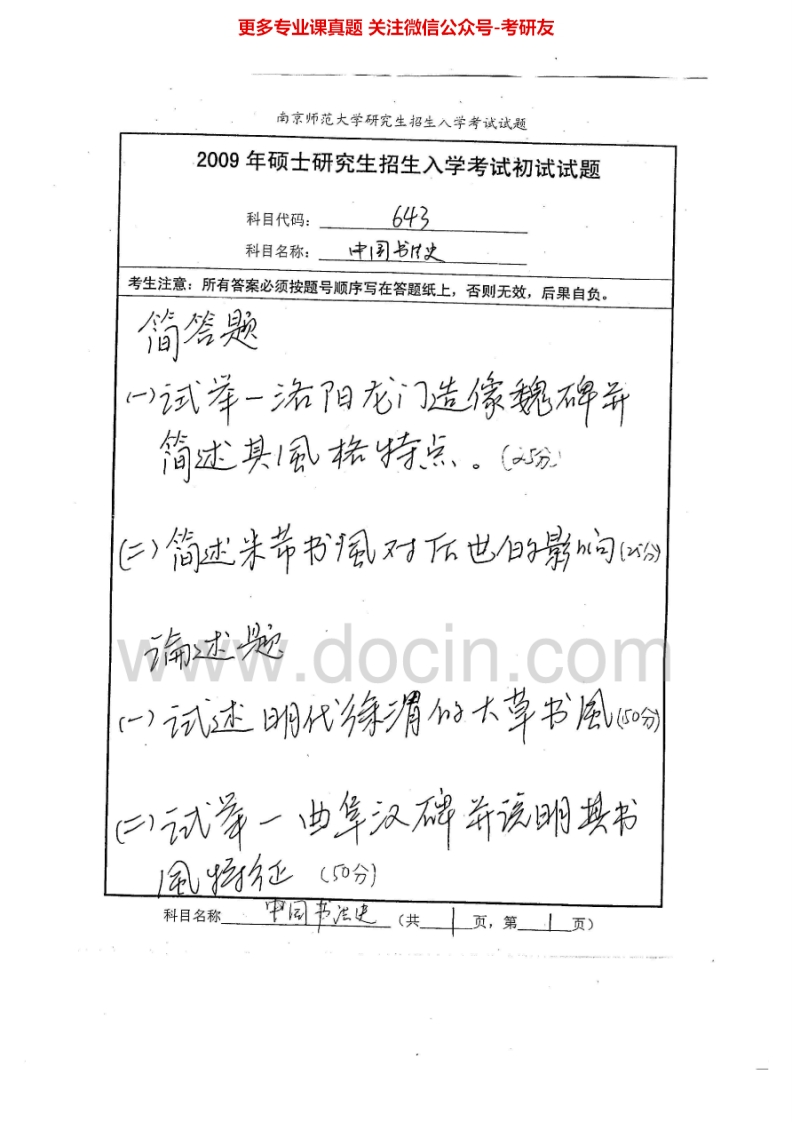 更多专业课真题 关注微信公众号-考研友
南京师范大学研究生招生入学考试试题
2009 年硕士研究生招生入学考试初试试题
科目代码： 643
科目名称： 中国书法史
考生注意：所有答案必须按题号顺序写在答题纸上，否则无效，后果自负。
简答题
(一)试举一洛阳龙门造像魏碑并
简述其風格特点。(25分)
(二)简述米芾书風对后世的影响(25分)
www.docin.com
论述题
(一)试述明代徐渭的大草书風(50分)
(二)试举一曲阜汉碑并说明其书
風特征 (50分)
科目名称 中国书法史 （共 1 页，第 1 页）